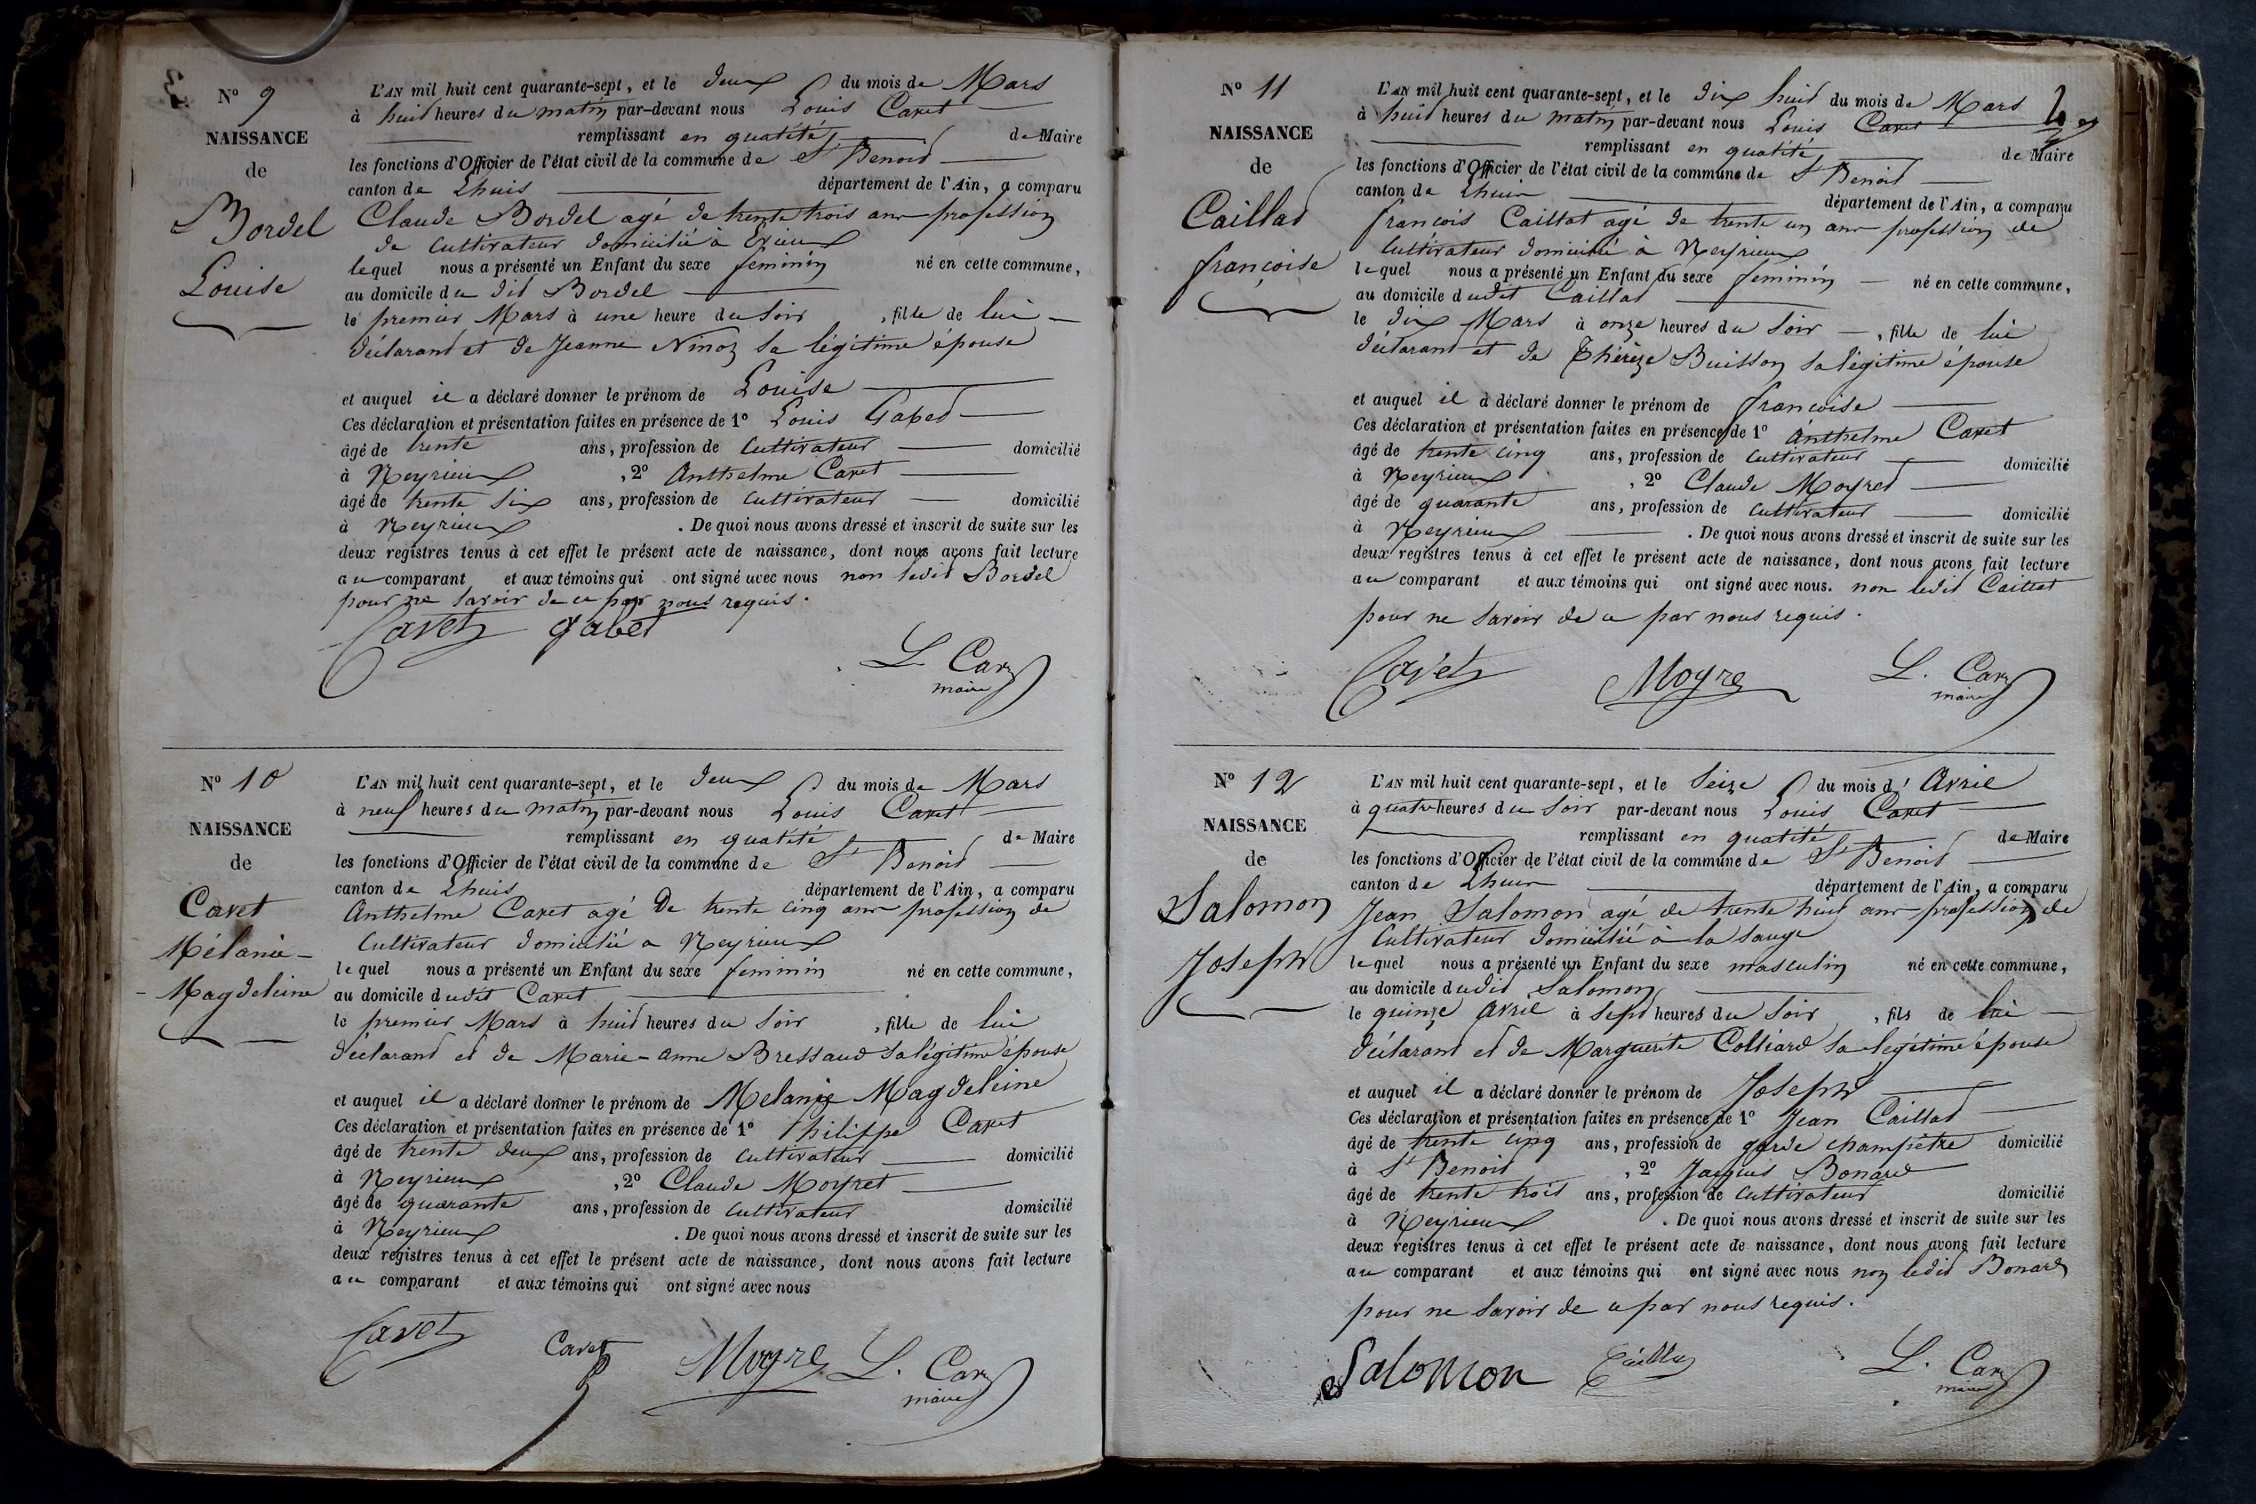 N° 9
NAISSANCE
de
Bordel
Louise
L'AN mil huit cent quarante-sept, et le deux du mois de Mars
à huit heures du matin par-devant nous Louis Cavet
remplissant en qualité de Maire
les fonctions d'Officier de l'état civil de la commune de St Benoit
canton de Lhuis département de l'Ain, a comparu
Claude Bordel agé de trente trois ans profession
de cultivateur domicilié à
lequel nous a présenté un Enfant du sexe feminin né en cette commune,
au domicile du dit Bordel
le premier Mars à une heure du soir , fille de lui
déclarant et de Jeanne Ninoz sa légitime épouse
et auquel il a déclaré donner le prénom de Louise
Ces déclaration et présentation faites en présence de 1° Louis Gabet
âgé de trente ans, profession de cultivateur domicilié
à Neyrieux , 2° Anthelme Cavet
âgé de trente six ans, profession de cultivateur domicilié
à Neyrieux . De quoi nous avons dressé et inscrit de suite sur les
deux registres tenus à cet effet le présent acte de naissance, dont nous avons fait lecture
au comparant et aux témoins qui ont signé avec nous non ledit Bordel
pour ne savoir de ce par nous requis.
Cavet gabet
L. Cavet
maire
N° 10
NAISSANCE
de
Cavet
Mélanie-
-Magdeleine
L'AN mil huit cent quarante-sept, et le deux du mois de Mars
à neuf heures du matin par-devant nous Louis Cavet
remplissant en qualité de Maire
les fonctions d'Officier de l'état civil de la commune de St Benoit
canton de Lhuis département de l'Ain, a comparu
Anthelme Cavet agé De trente cinq ans profession de
cultivateur domicilié a Neyrieux
lequel nous a présenté un Enfant du sexe feminin né en cette commune,
au domicile dudit Cavet
le premier Mars à huit heures du soir , fille de lui
déclarant et de Marie-anne Bressaud sa légitime épouse
et auquel il a déclaré donner le prénom de Melanie Magdeleine
Ces déclaration et présentation faites en présence de 1° Philippe Cavet
âgé de trente deux ans, profession de cultivateur domicilié
à Neyrieux , 2° Claude Moyret
âgé de quarante ans, profession de cultivateur domicilié
à Neyrieux . De quoi nous avons dressé et inscrit de suite sur les
deux registres tenus à cet effet le présent acte de naissance, dont nous avons fait lecture
au comparant et aux témoins qui ont signé avec nous
Cavet Cavet Moyret L. Cavet
maire
N° 11
NAISSANCE
de
Caillat
françoise
L'AN mil huit cent quarante-sept, et le dix huit du mois de Mars
à huit heures du matin par-devant nous Louis Cavet
remplissant en qualité de Maire
les fonctions d'Officier de l'état civil de la commune de St Benoit
canton de Lhuis département de l'Ain, a comparu
françois Caillat agé de trente un ans profession de
cultivateur domicilié à Neyrieux
lequel nous a présenté un Enfant du sexe feminin né en cette commune,
au domicile dudit Caillat
le dix Mars à onze heures du soir , fille de lui
déclarant et de Thérèze Buisson sa légitime épouse
et auquel il a déclaré donner le prénom de françoise
Ces déclaration et présentation faites en présence de 1° Anthelme Cavet
âgé de trente cinq ans, profession de cultivateur domicilié
à Neyrieux , 2° Claude Moyret
âgé de quarante ans, profession de cultivateur domicilié
à Neyrieux . De quoi nous avons dressé et inscrit de suite sur les
deux registres tenus à cet effet le présent acte de naissance, dont nous avons fait lecture
au comparant et aux témoins qui ont signé avec nous. non ledit Caillat
pour ne savoir de ce par nous requis.
Cavet Moyret L. Cavet
maire
N° 12
NAISSANCE
de
Salomon
Joseph
L'AN mil huit cent quarante-sept, et le seize du mois d'Avril
à quatre heures du soir par-devant nous Louis Cavet
remplissant en qualité de Maire
les fonctions d'Officier de l'état civil de la commune de St Benoit
canton de Lhuis département de l'Ain, a comparu
Jean Salomon agé de trente huit ans profession de
cultivateur domicilié à la sauge
lequel nous a présenté un Enfant du sexe masculin né en cette commune,
au domicile dudit Salomon
le quinze avril à sept heures du soir , fils de lui
déclarant et de Marguerite Colliard sa légitime épouse
et auquel il a déclaré donner le prénom de Joseph
Ces déclaration et présentation faites en présence de 1° Jean Caillat
âgé de trente cinq ans, profession de garde champètre domicilié
à St Benoit , 2° Jacques Bonard
âgé de trente trois ans, profession de cultivateur domicilié
à Neyrieux . De quoi nous avons dressé et inscrit de suite sur les
deux registres tenus à cet effet le présent acte de naissance, dont nous avons fait lecture
au comparant et aux témoins qui ont signé avec nous non ledit Bonard
pour ne savoir de ce par nous requis.
Salomon Caillat L. Cavet
maire